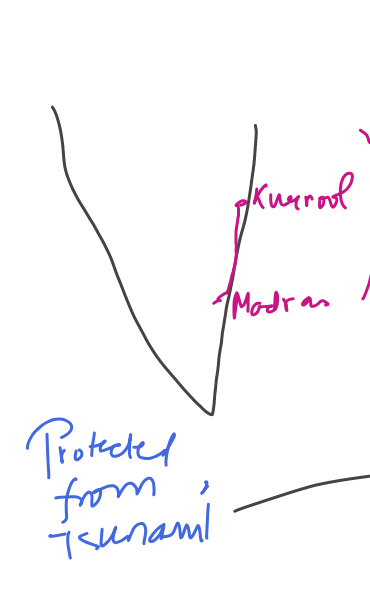 Kurnool
Madras
Protected
from
Tsunami